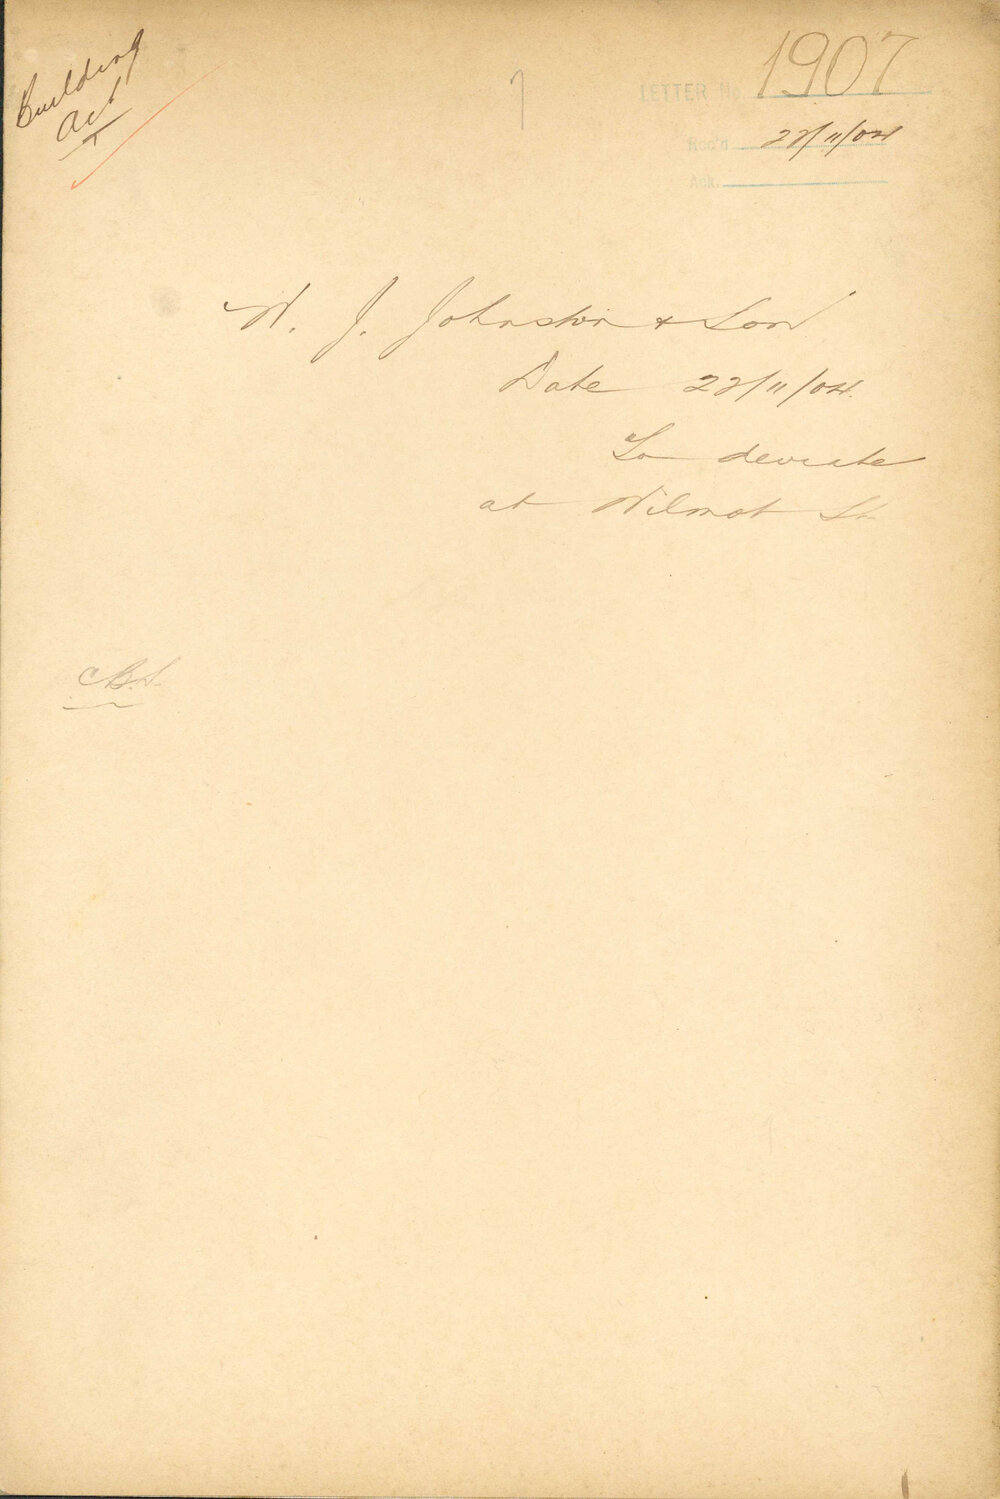 Building
Act
LETTER No. 1907
Rec'd 22/11/04
Ack.
W. J. Johnston & Son
Date 22/11/04.
To deviate
at Wilmot St